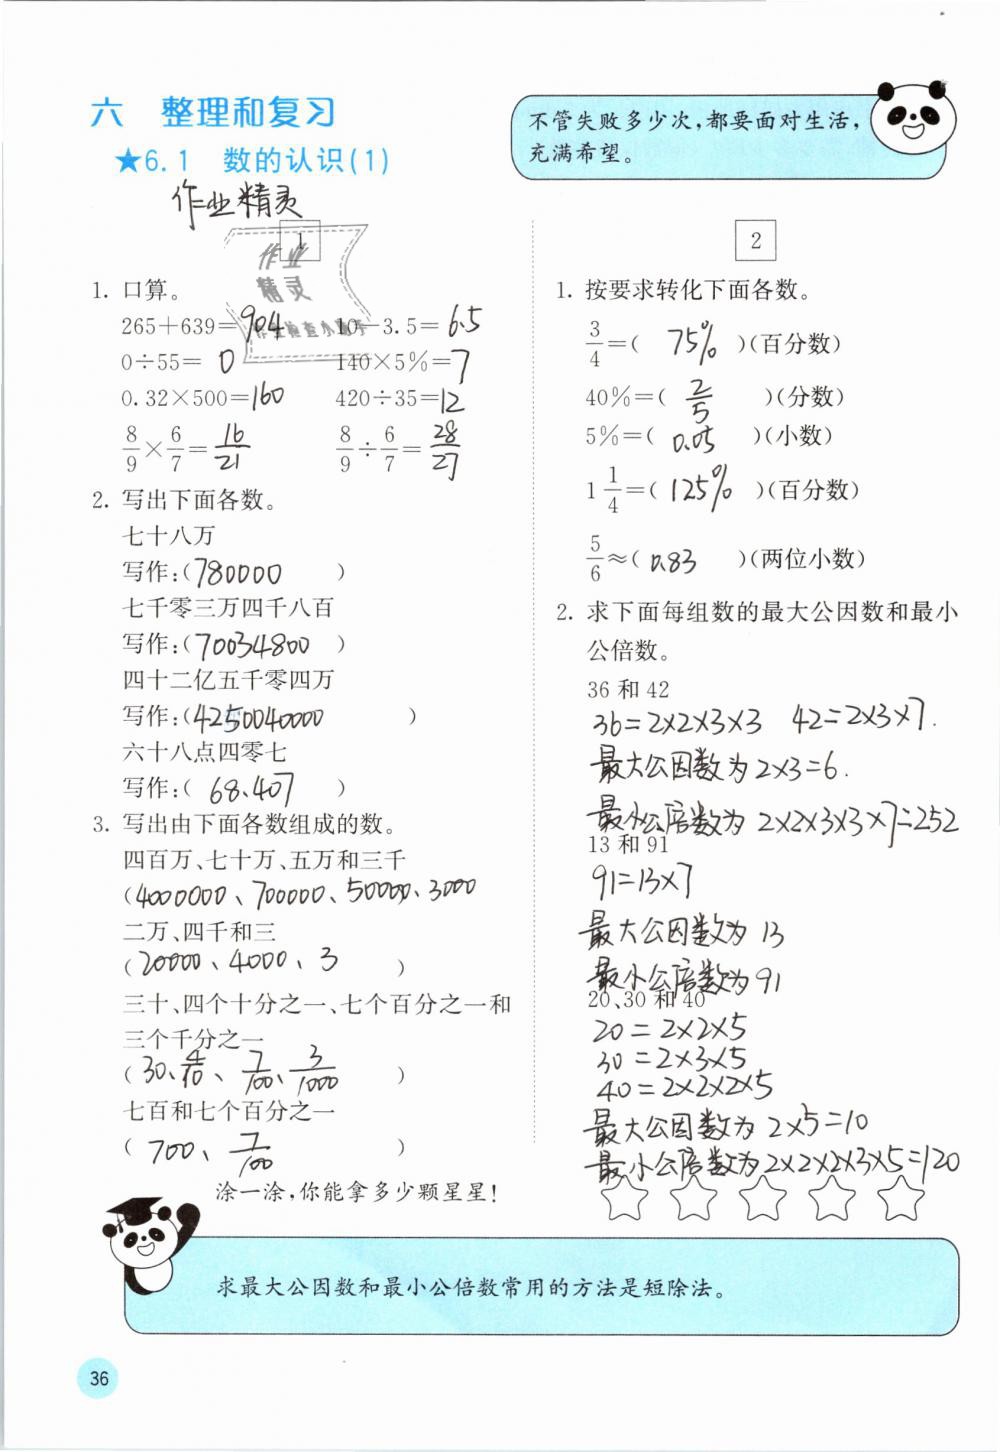 六 整理和复习
★6.1 数的认识(1)
不管失败多少次,都要面对生活,
充满希望。
作业精灵
1
作业
精灵
1. 口算。
265+639=904 10-3.5=6.5
0÷55=0 140×5%=7
0.32×500=160 420÷35=12
8/9×6/7=16/21 8/9÷6/7=28/27
2. 写出下面各数。
七十八万
写作:(780000)
七千零三万四千八百
写作:(70034800)
四十二亿五千零四万
写作:(4250040000)
六十八点四零七
写作:(68.407)
3. 写出由下面各数组成的数。
四百万、七十万、五万和三千
(4000000、700000、50000、3000
二万、四千和三
(20000、4000、3)
三十、四个十分之一、七个百分之一和
三个千分之一
(30、4/10、7/100、3/1000)
七百和七个百分之一
(700、7/100)
2
1. 按要求转化下面各数。
3/4=(75%)(百分数)
40%=(2/5)(分数)
5%=(0.05)(小数)
1 1/4=(125%)(百分数)
5/6≈(0.83)(两位小数)
2. 求下面每组数的最大公因数和最小
公倍数。
36 和 42
36=2×2×3×3 42=2×3×7.
最大公因数为2×3=6.
最小公倍数为2×2×3×3×7=252
13 和 91
91=13×7
最大公因数为 13
最小公倍数为91
20、30 和 40
20=2×2×5
30=2×3×5
40=2×2×2×5
最大公因数为2×5=10
最小公倍数为2×2×2×3×5=120
涂一涂,你能拿多少颗星星!
求最大公因数和最小公倍数常用的方法是短除法。
36